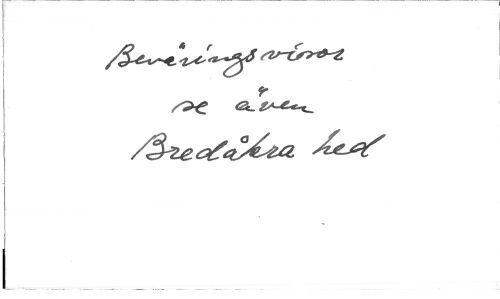 Beväringsvisor
se även
Bredåkra hed